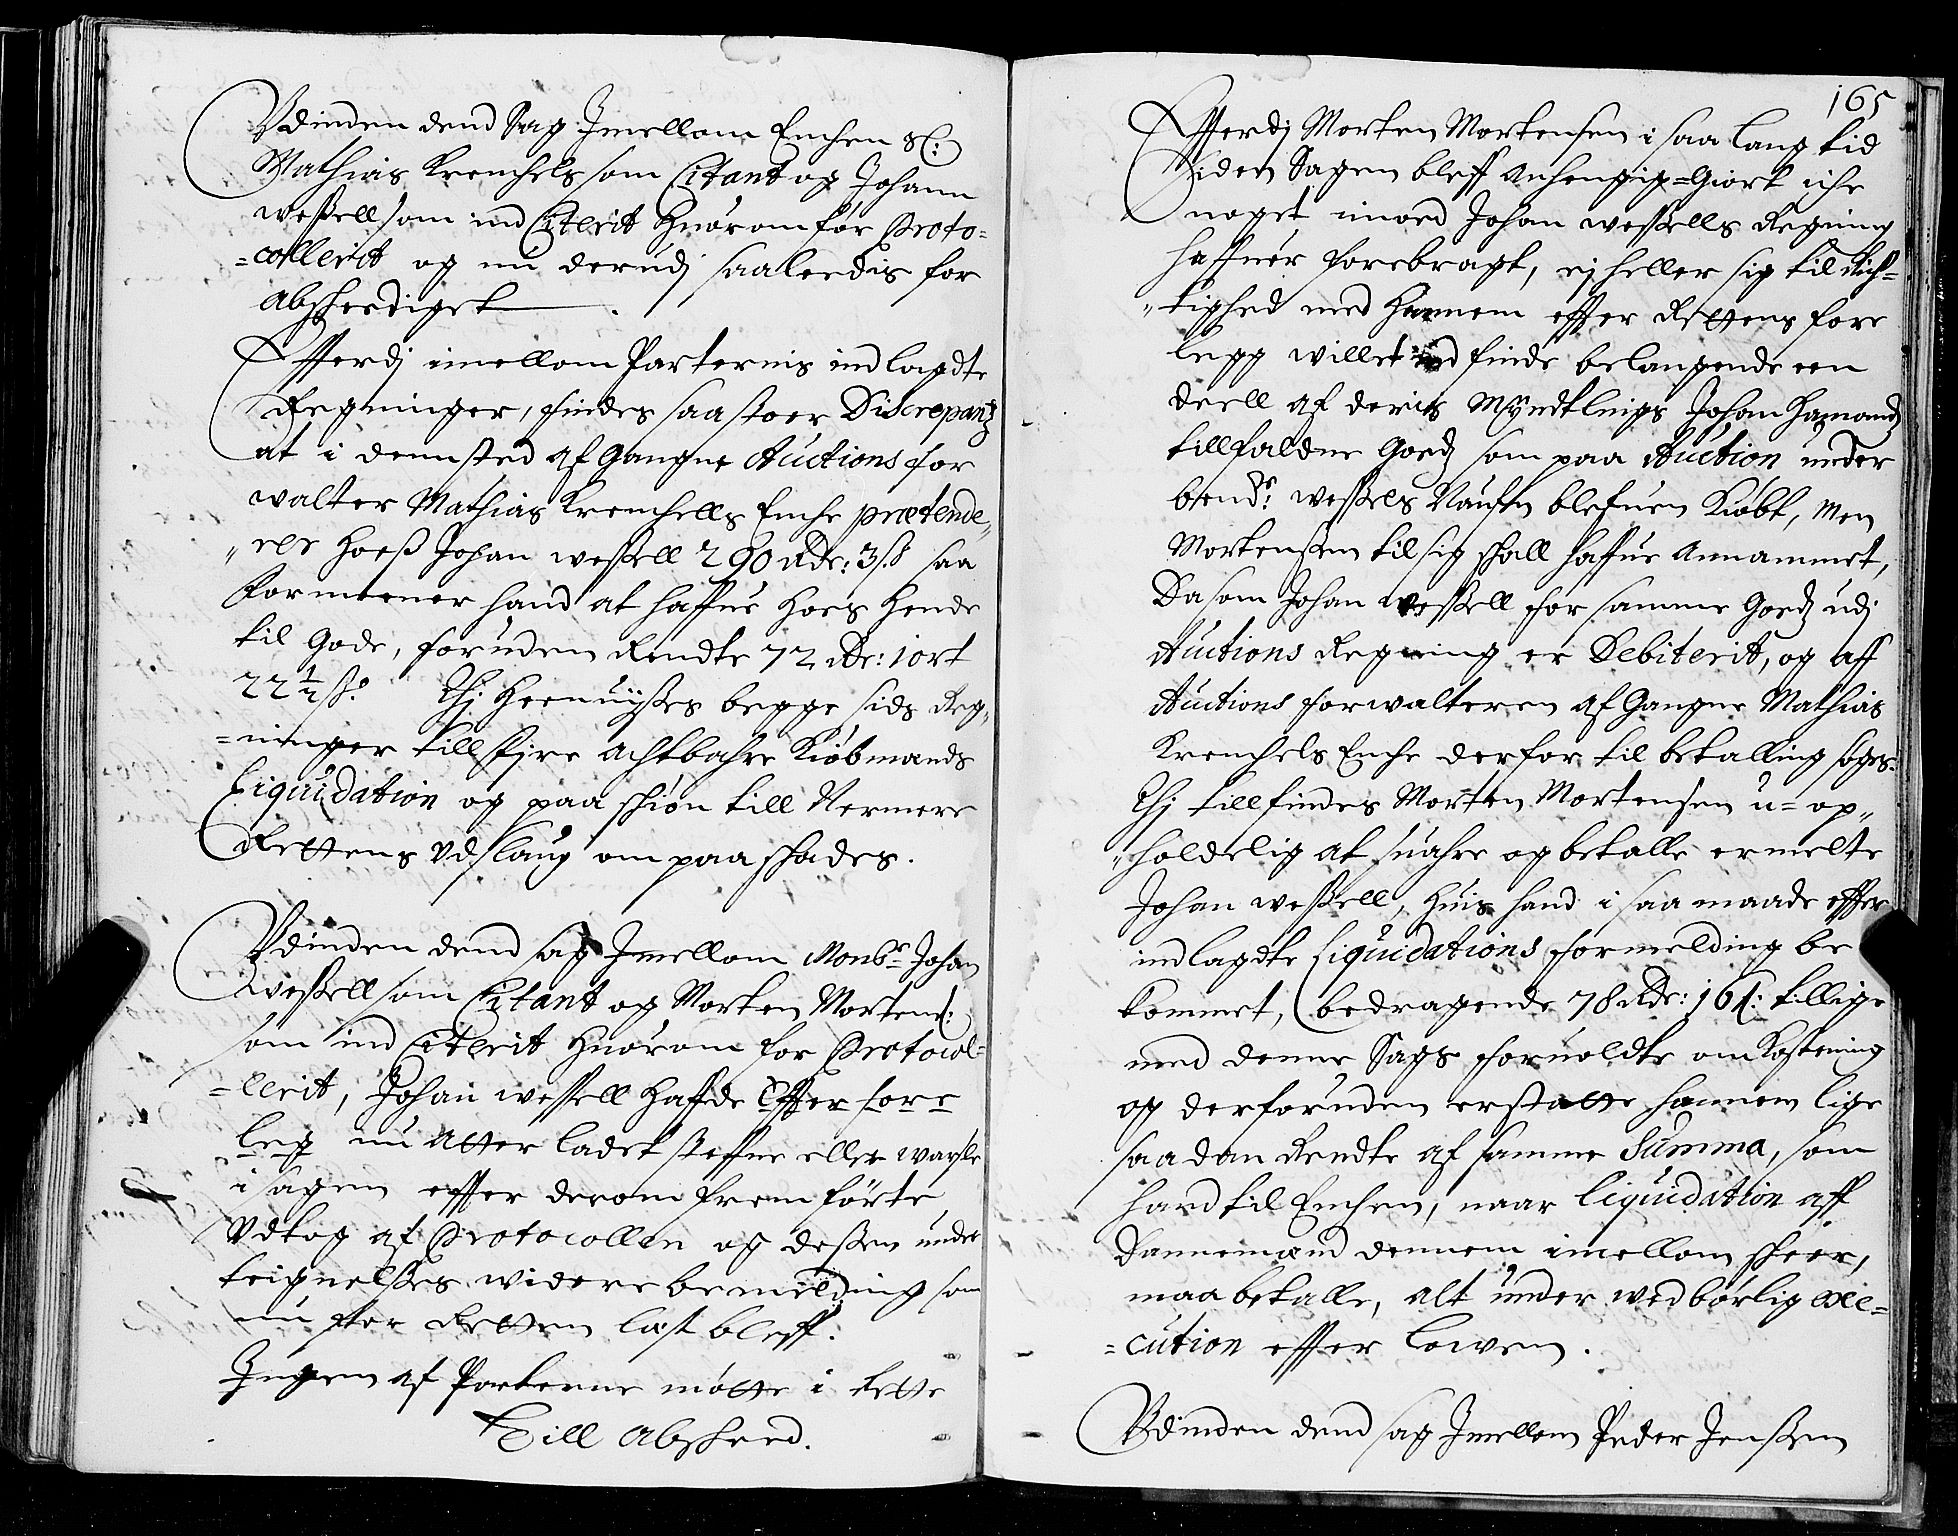 Udinden dend Sag Imellom Enchen Sl:
Mathias Krenchels som Citant og Johann
Wessell som ind Citerit huorom før Proto=
=collerit og nu derudj saaleedis for
Abscheediget
Efterdj imellom Parternis indlagdte
Regninger, findes saa stoer Discrepantz
at i dennsted afgangne Auctions for
walter Mathias Krenchells Enche prætende„
„rer hoeß Johan Wessell 290 Rdr: 3 ß saa
formeener hand at haffue hoes hende
til gode, foruden Rendte 72 Rdr: 1 ort
22½ ß. Thj heenuißes begge sids Reg„
=ninger till fire achtbahre Kiøbmands
Liquidation og paa schiøn till Nermere
Rettens Udslaug om paa schades.
Udinden dend sag Imellom Monsr Johan
Wessell som Citant og Morten Mortens:
som ind Citerit huorom for Protocol=
=lerit, Johan Wessell hafde Efter fore
leg nu atter ladet steffne eller warsle
i sagen effter derom frem førte
Udtog af Protocollen og dessen under
teignelßes widere bemelding som
nu for Retten læst bleff.
Ingen af Parterne møtte i Rette
Till Abscheed.
165
Efterdj Morten Mortensen i saa lang tid
siden Sagen bleff anhengig=Giort iche
noget imoed Johan Wessells Regning
haffuer forebragt, ej heller sig til Rich=
„tighed med hannem effter Rettens fore
legg willet ind finde belangende een
deell af deris Myndtlings Johan Hamonds
tillfaldne Goedz som paa Auction under
bendr: Wessels Naufn blefuen Kiøbt, Men
Mortensen til sig schall haffue Annammet,
Da som Johan Wessell for samme Goedz udj
Auctions Regning er Debiterit, og aff
Auctions forwalteren afgangne Mathias
Krenchels Enche derfor til betalling søges.
Thj tillfindes Morten Mortensen u=op„
„holdelig at suahre og betalle ermelte
Johan Wessell, huis hand i saa maade effter
indlagdte Liquidations formelding be
kommet, bedragende 78 Rdr: 16 ß: tillige
med denne Sags foruoldte omkostning
og derforuden erstatte hannem lige
saadan Rendte af samme Summa, som
hand til Enchen, naar liquidation aff
Dannemænd dennem imellom scheer,
maa betalle, alt under wedbørlig exe=
=cution effter Lowen.
Udinden dend sag Imellom Peder Jenssen